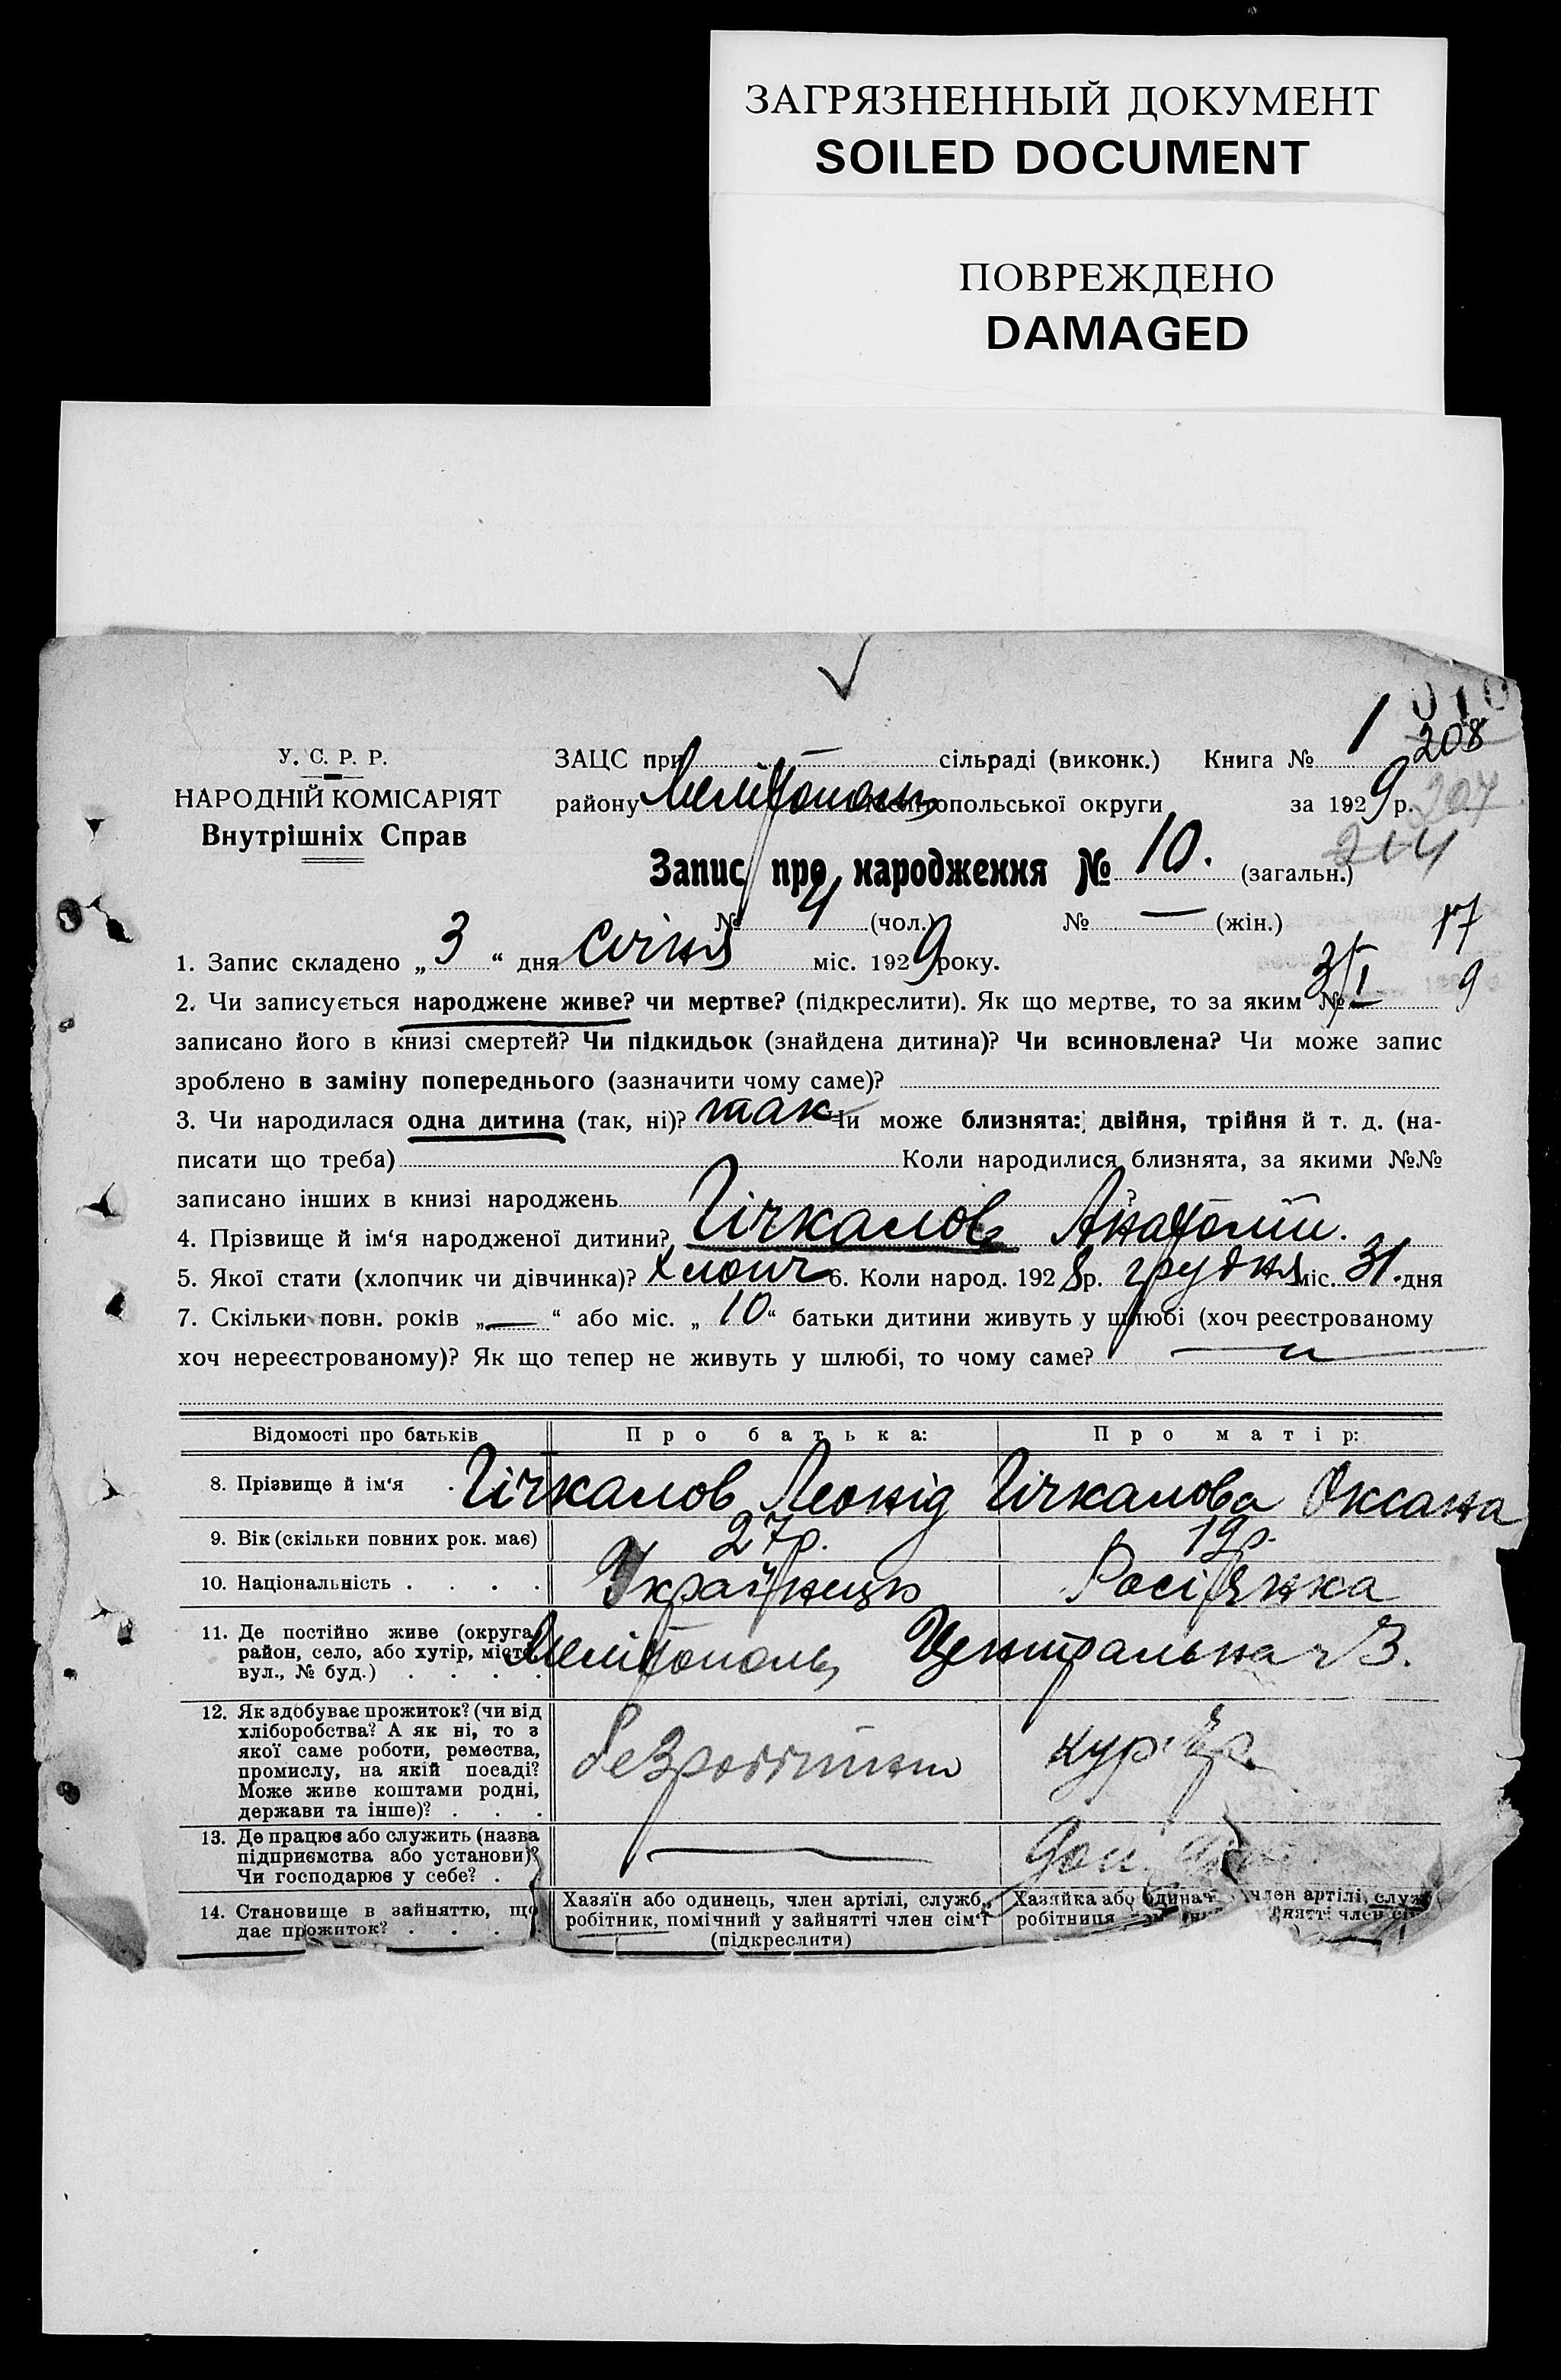 ЗАГРЯЗНЕННЫЙ ДОКУМЕНТ
SOILED DOCUMENT
ПОВРЕЖДЕНО
DAMAGED
010
208
207
214
У. С. Р. Р.
НАРОДНІЙ КОМІСАРІЯТ
Внутрішніх Справ
ЗАЦС при — сільраді (виконк.) Книга № 1
району Мелітополь Мелітопольської округи за 1929 р.
Запис про народження № 10. (загальн.)
№ 4 (чол.) № — (жін.)
17
9
1. Запис складено „ 3 “ дня січня міс. 1929 року.
2. Чи записується народжене живе? чи мертве? (підкреслити). Як що мертве, то за яким № 3/I
записано його в книзі смертей? Чи підкидьок (знайдена дитина)? Чи всиновлена? Чи може запис
зроблено в заміну попереднього (зазначити чому саме)?
3. Чи народилася одна дитина (так, ні)? так Чи може близнята: двійня, трійня й т. д. (на-
писати що треба) Коли народилися близнята, за якими №№
записано інших в книзі народжень ?
4. Прізвище й ім‘я народженої дитини? Гічкалов Анатолій.
5. Якої стати (хлопчик чи дівчинка)? хлопч 6. Коли народ. 1928 р. грудня міс. 31. дня
7. Скільки повн. років „ — “ або міс. „ 10 “ батьки дитини живуть у шлюбі (хоч реєстрованому
хоч нереєстрованому)? Як що тепер не живуть у шлюбі, то чому саме?
Відомості про батьків Про батька: Про матір:
8. Прізвище й ім‘я Гічкалов Леонід Гічкалова Оксана
9. Вік (скільки повних рок. має) 27 р. 19 р.
10. Національність Українець Росіянка
11. Де постійно живе (округа,
район, село, або хутір, місто,
вул., № буд.) Мелітополь, Центральна 3.
12. Як здобуває прожиток? (чи від
хліборобства? А як ні, то з
якої саме роботи, ремества,
промислу, на якій посаді?
Може живе коштами родні,
держави та інше)? безробітний кур'єр
13. Де працює або служить (назва
підприємства або установи)?
Чи господарює у себе? —
14. Становище в зайняттю, що
дає прожиток?
Хазяїн або одинець, член артілі, служб.,
робітник, помічний у зайнятті член сім‘ї
(підкреслити)
Хазяйка або одинач член артілі, служ
робітниця